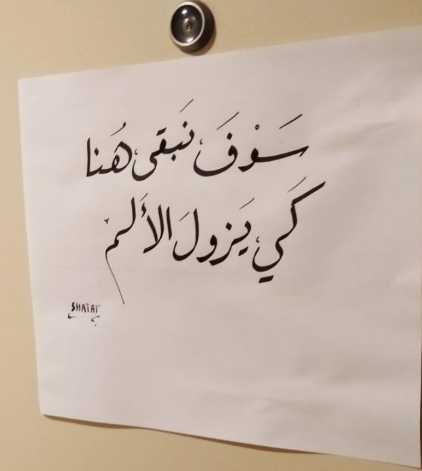 سَوْفَ نَبقى هُنا
كَي يَزولَ الأَلم
SHATAT